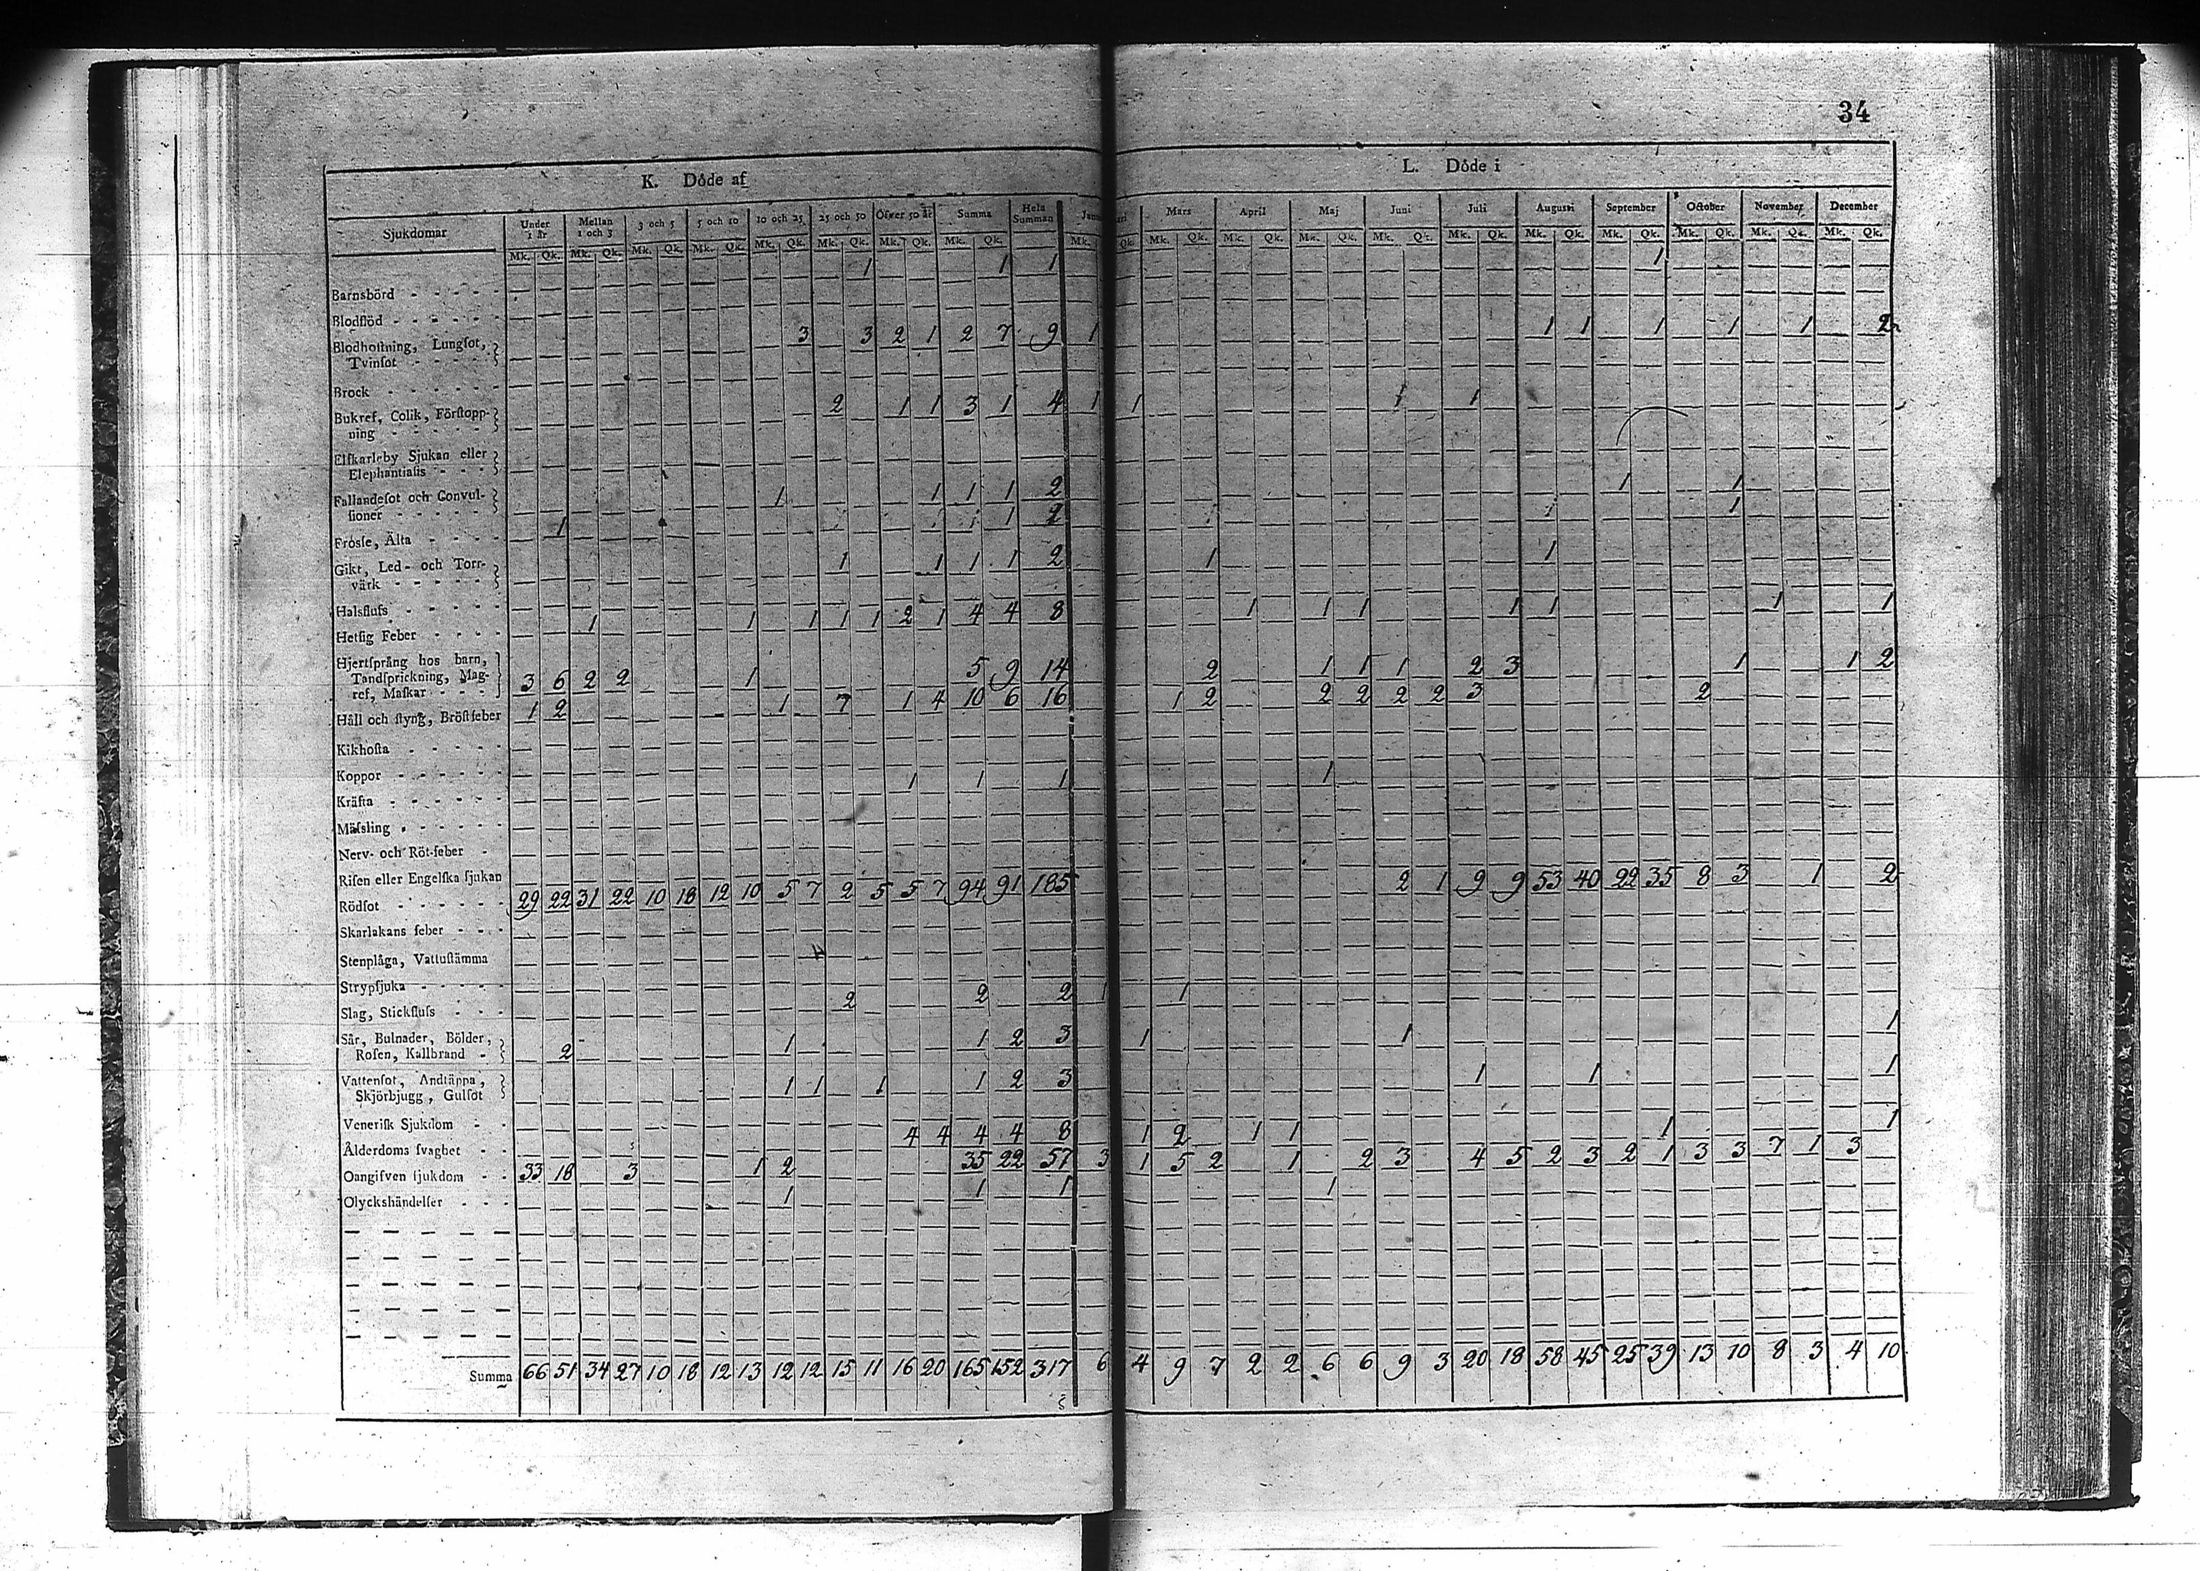 34
K. Döde af
L. Döde i
Sjukdomar Under 1 år Mellan 1 och 3 3 och 5 5 och 10 10 och 25 25 och 50 Öfver 50 år Summa Hela Summan Mars April Maj Juni Juli Augusti September October November December
Mk. Qk. Mk. Qk. Mk. Qk. Mk. Qk. Mk. Qk. Mk. Qk. Mk. Qk. Mk. Qk. Mk. Qk. Mk. Qk. Mk. Qk. Mk. Qk. Mk. Qk. Mk. Qk. Mk. Qk. Mk. Qk. Mk. Qk. Mk. Qk. Mk. Qk.
Barnsbörd 1 1 1 1
Blodflöd
Blodhostning, Lungsot,
Tvinsot 3 3 2 1 2 7 9 1 1 1 1 1 1 2
Brock
Bukref, Colik, Förstopp-
ning 2 1 1 3 1 4 1 1 1 1
Elfkarleby Sjukan eller
Elephantiasis
Fallandesot och Convul-
sioner 1 1 1 1 2 1 1
Frosse, Älta 1 1 2 1
Gikt, Led- och Torr-
värk 1 1 1 1 2 1 1
Halsfluss
Hetsig Feber 1 1 1 1 1 2 1 4 4 8 1 1 1 1 1 1 1
Hjertsprång hos barn,
Tandsprickning, Mag-
ref, Maskar 3 6 2 2 1 5 9 14 2 1 1 1 2 3 1 1 2
Håll och styng, Bröstfeber 1 2 1 7 1 4 10 6 16 1 2 2 2 2 2 3 2
Kikhosta
Koppor
Kräfta 1 1 1 1
Mässling
Nerv- och Röt-feber
Risen eller Engelska sjukan
Rödsot 29 22 31 22 10 18 12 10 5 7 2 5 5 7 94 91 185 2 1 9 9 53 40 22 35 8 3 1 2
Skarlakans feber
Stenplåga, Vattustämma
Strypsjuka
Slag, Stickfluss 2 2 2 1 1
Sår, Bulnader, Bölder,
Rosen, Kallbrand 2 1 1 2 3 1 1 1
Vattensot, Andtäppa,
Skjörbjugg, Gulsot 1 1 1 1 2 3 1 1 1
Venerisk Sjukdom
Ålderdoms svaghet 4 4 4 4 8 1 2 1 1 1 1
Oangifven sjukdom 33 18 3 1 2 35 22 57 3 1 5 2 1 2 3 4 5 2 3 2 1 3 3 7 1 3
Olyckshändelser 1 1 1 1
Summa 66 51 34 27 10 18 12 13 12 12 15 11 16 20 165 152 317 6 4 9 7 2 2 6 6 9 3 20 18 58 45 25 39 13 10 8 3 4 10